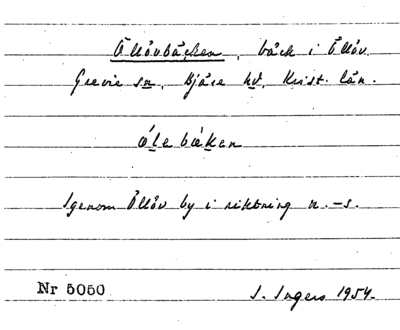 Ållövbäcken, bäck i Ållöv
Grevie sn, Bjäre hd, Krist. län.
ålebäken
Igenom Ållöv by i riktning n.–s.
Nr 5050
I. Ingers 1954.